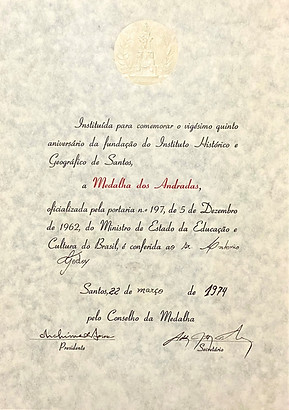 Instituída para comemorar o vigésimo quinto
aniversário da fundação do Instituto Histórico e
Geográfico de Santos,
a Medalha dos Andradas,
oficializada pela portaria n.º 197, de 5 de Dezembro
de 1962, do Ministro de Estado da Educação e
Cultura do Brasil, é conferida ao Sr. Antonio
Godoy
Santos, 22 de março de 1974
pelo Conselho da Medalha
Presidente Secretário